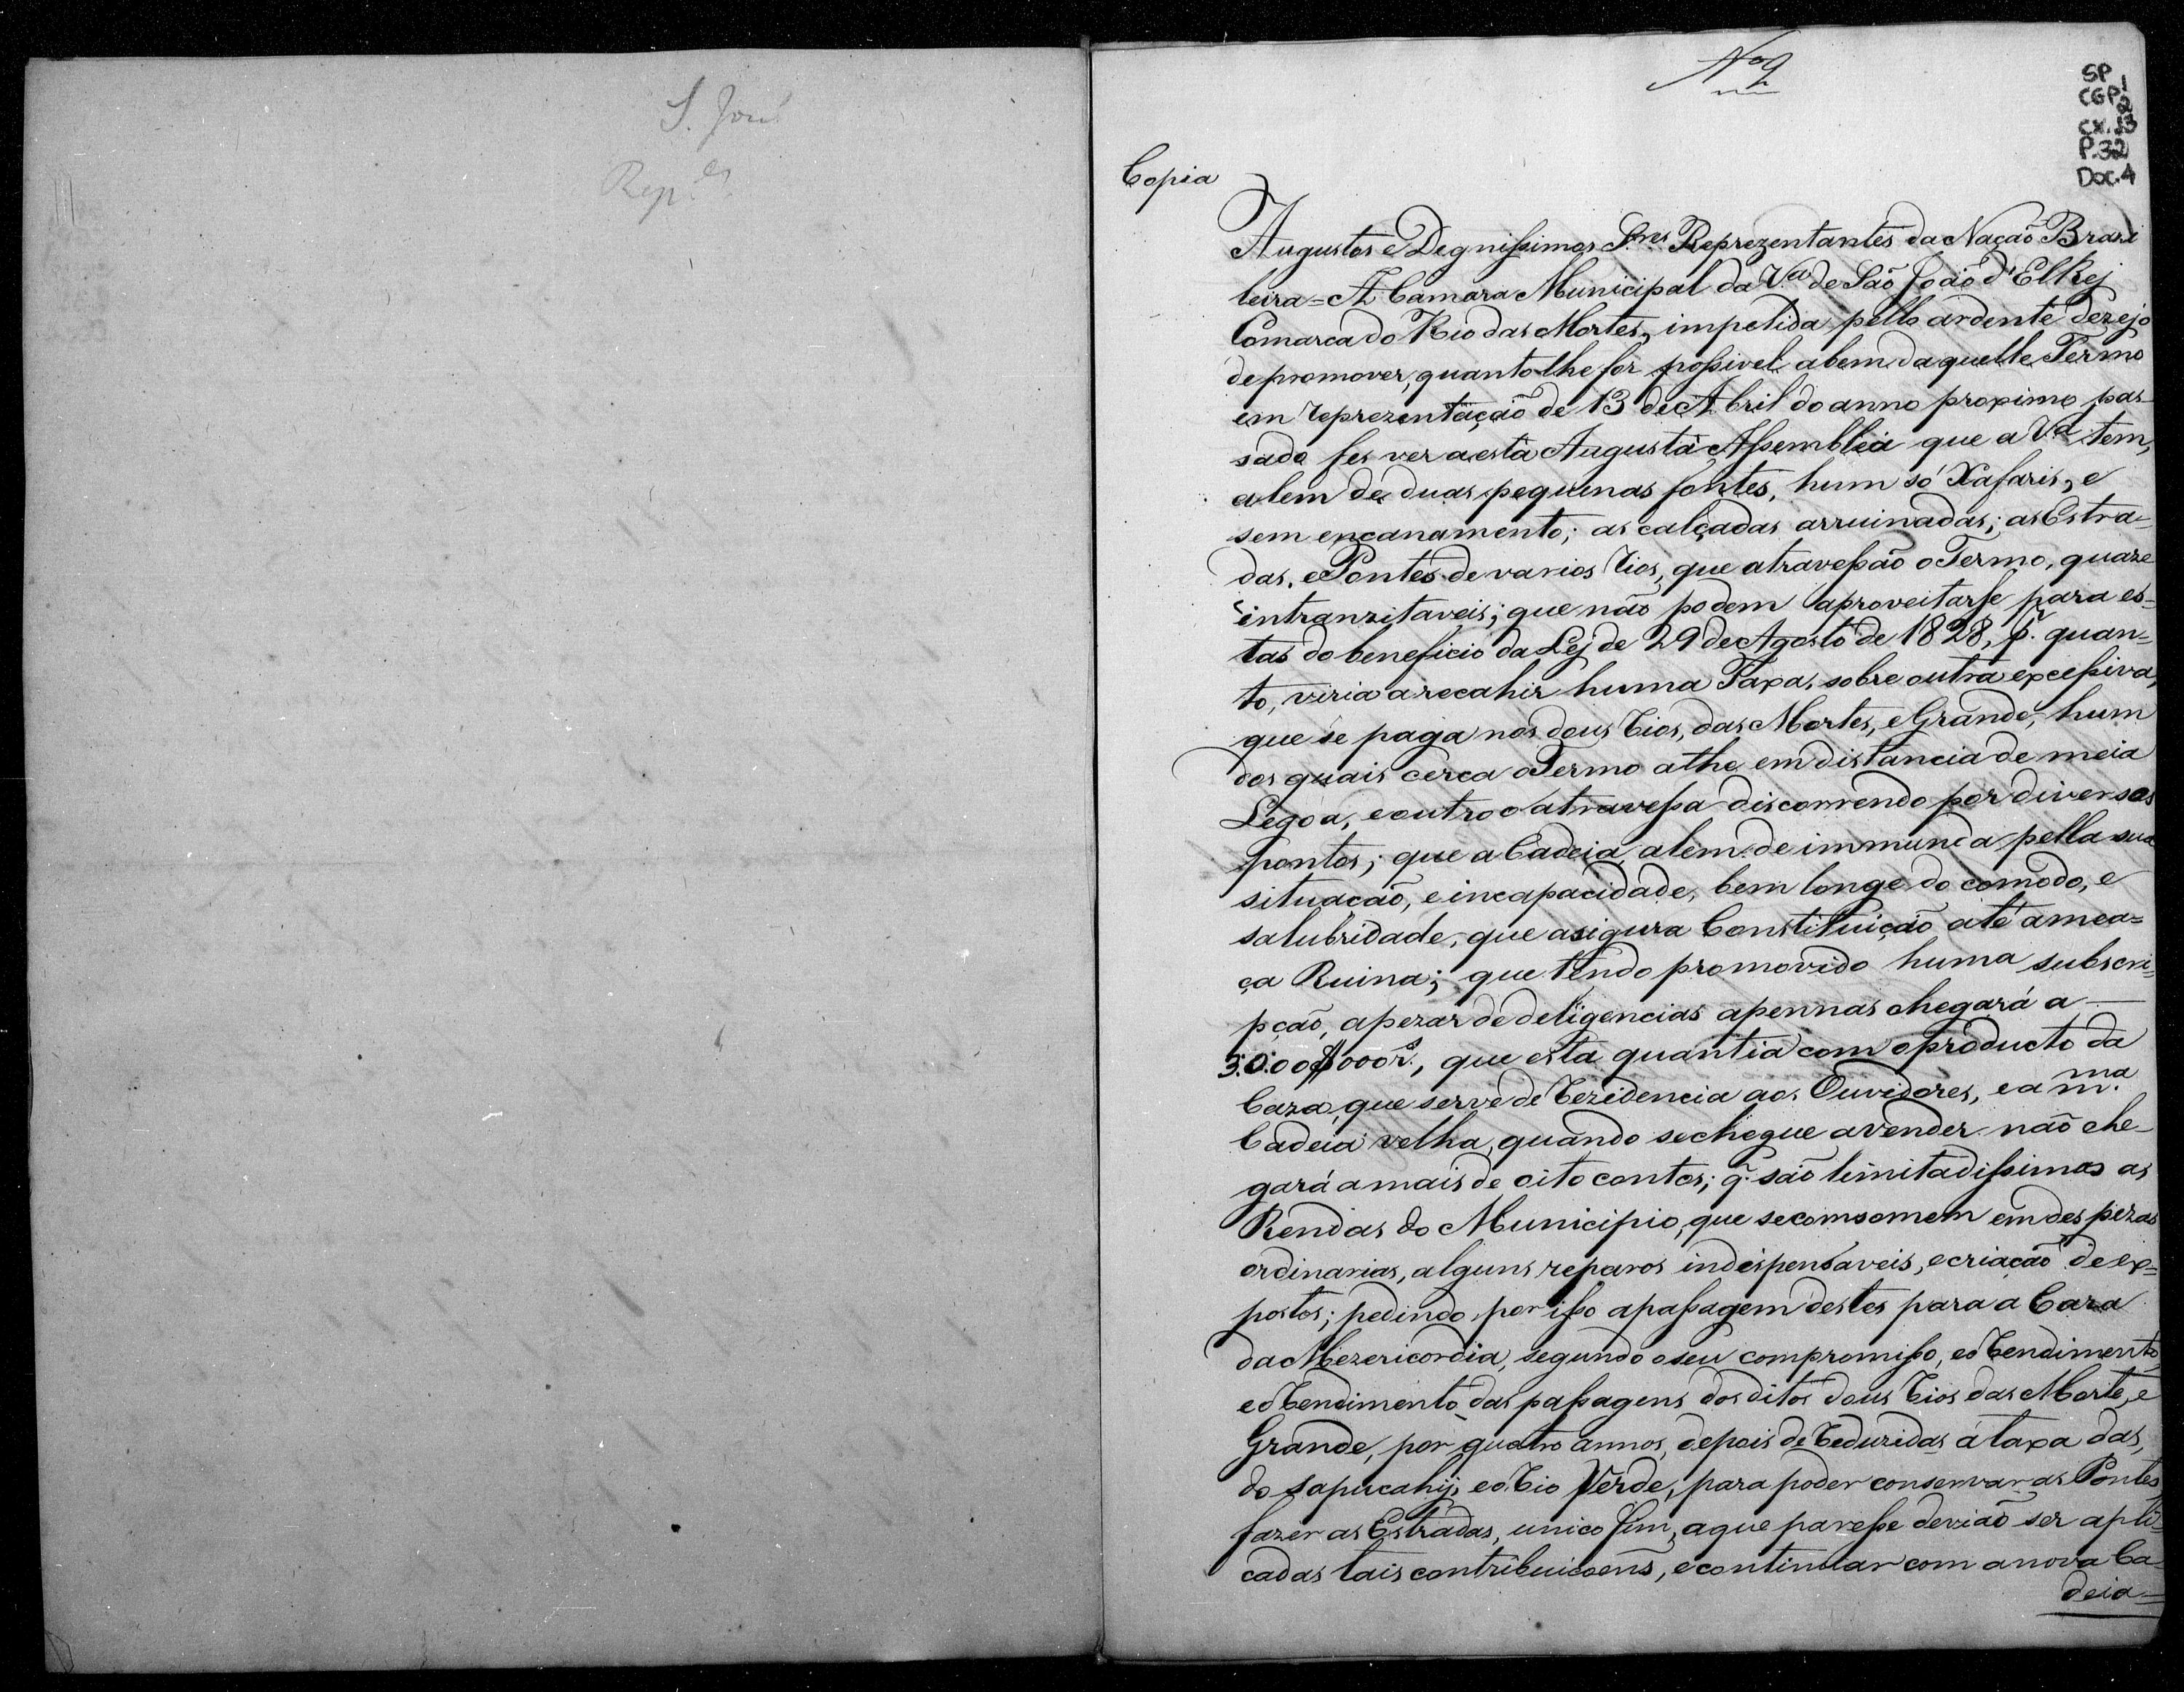 S. José
Rep.es
Nº 2
SP
CGP 1
2
CX. 13
P. 32
Doc. 4
Copia
Augustos e Degnissimos Snres Reprezentantes da Nação Brazi
leira = A Camara Municipal da V.a de São João d'ElRej
Comarca do Rio das Mortes, impelida pello ardente dezejo
de promover, quanto lhe for possivel a bem daquelle Termo
em reprezentação de 13 de Abril do anno proximo pas-
sado fes ver a esta Augusta Assemblea que a V.a tem,
alem de duas pequenas fontes, hum só Xafaris, e
sem encanamento; as calçadas arruinadas; as Estra-
das, e Pontes de varios rios, que atravessão o Termo, quaze
intranzitaveis; que não podem aproveitarse para es-
tas do beneficio da Lej de 29 de Agosto de 1828, p.r quan-
to, viria a recahir huma Taxa, sobre outra excessiva,
que se paga nos dous rios, das Mortes, e Grande, hum
dos quais cerca o Termo athe em distancia de meia
Legoa, e outro o atravessa discorrendo por diversos
pontos; que a Cadeia, alem de immunda pella sua
situacão, e incapacidade, bem longe do comodo, e
salubridade, que asigura Constituição até amea-
ça Ruina; que tendo promovido huma subscri-
pção, apezar de deligencias apennas chegará a
3:0:00$000rs., que esta quantia com o producto da
Caza, que serve de rezidencia aos Ouvidores, e a m.ma
Cadeia velha, quando se chegue a vender não che-
gará a mais de oito contos; q. são limitadissimas as
Rendas do Municipio, que se comsomem em despezas
ordinarias, alguns reparos indespensaveis, e criação de ex=
postos; pedindo por isso a passagem destes para a Caza
da Mezericordia, segundo o seu compromisso, e o rendimento,
e o rendimento das passagens dos ditos dous rios das Morte, e
Grande, por quatro annos, depois de reduzidas á taxa das,
do Sapucahij, e o rio Verde, para poder conservar as Pontes,
fazer as Estradas, unico fim, a que paresse devião ser apli-
cadas tais contribuicoens, e continuar com a nova Ca-
deia=